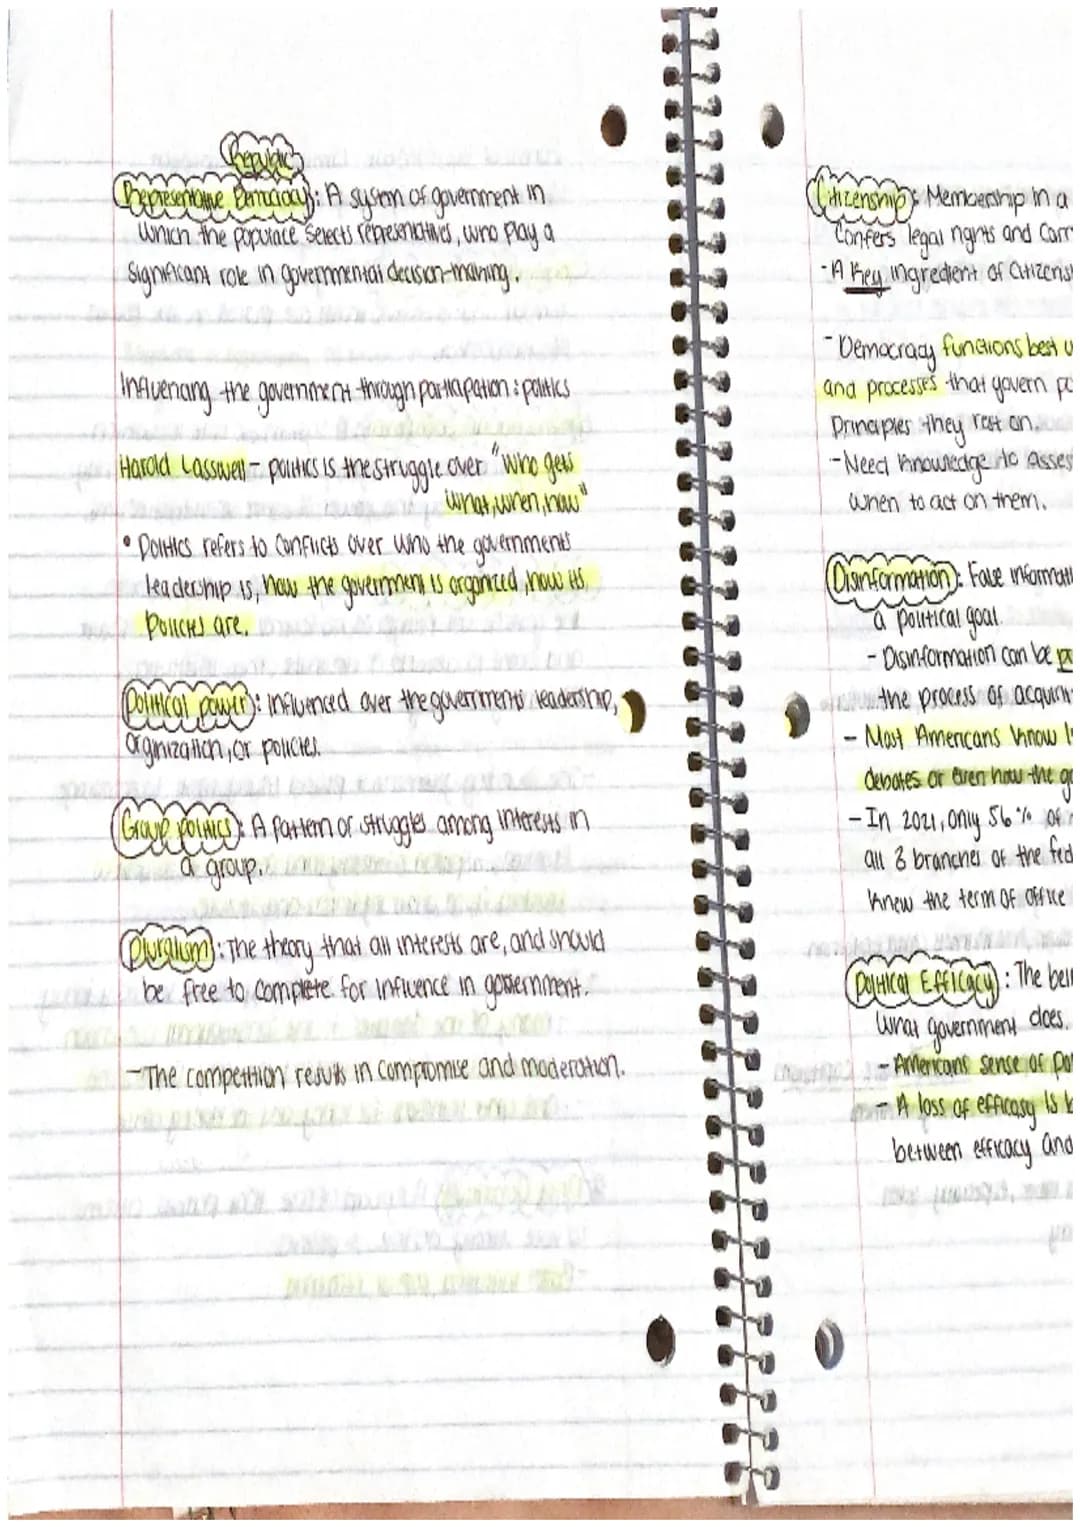 Republic
Representative Democracy: A system of government in
which the populace selects representatives, who play a
significant role in governmental decision-making.
Influencing the government through participation: politics
Harold Lasswell - politics is the struggle over "who gets
what, when, how"
• Politics refers to conflicts over who the governments
leadership is, how the government is organized, how its
policies are.
Political power: influenced over the government's leadership,
orginization, or policies.
Group politics: A pattern or struggles among interests in
a group.
Pluralism: The theory that all interests are, and should
be free to complete for influence in government.
- The competition results in compromise and moderation.
Citizenship: Membership in a
confers legal rights and carr
- A key ingredient of citizens
- Democracy functions best w
and processes that govern po
Principles they rest on.
- Need knowledge to asses
when to act on them.
Disinformation: False informati
a political goal.
- Disinformation can be po
the process of acquiri
- Most Americans know l
debates or even how the go
- In 2021, only 56% of
all 3 branches of the fed
knew the term of office
Political Efficacy: The beli
what government does.
- Americans sense of pol
- A loss of efficasy is b
between efficacy and